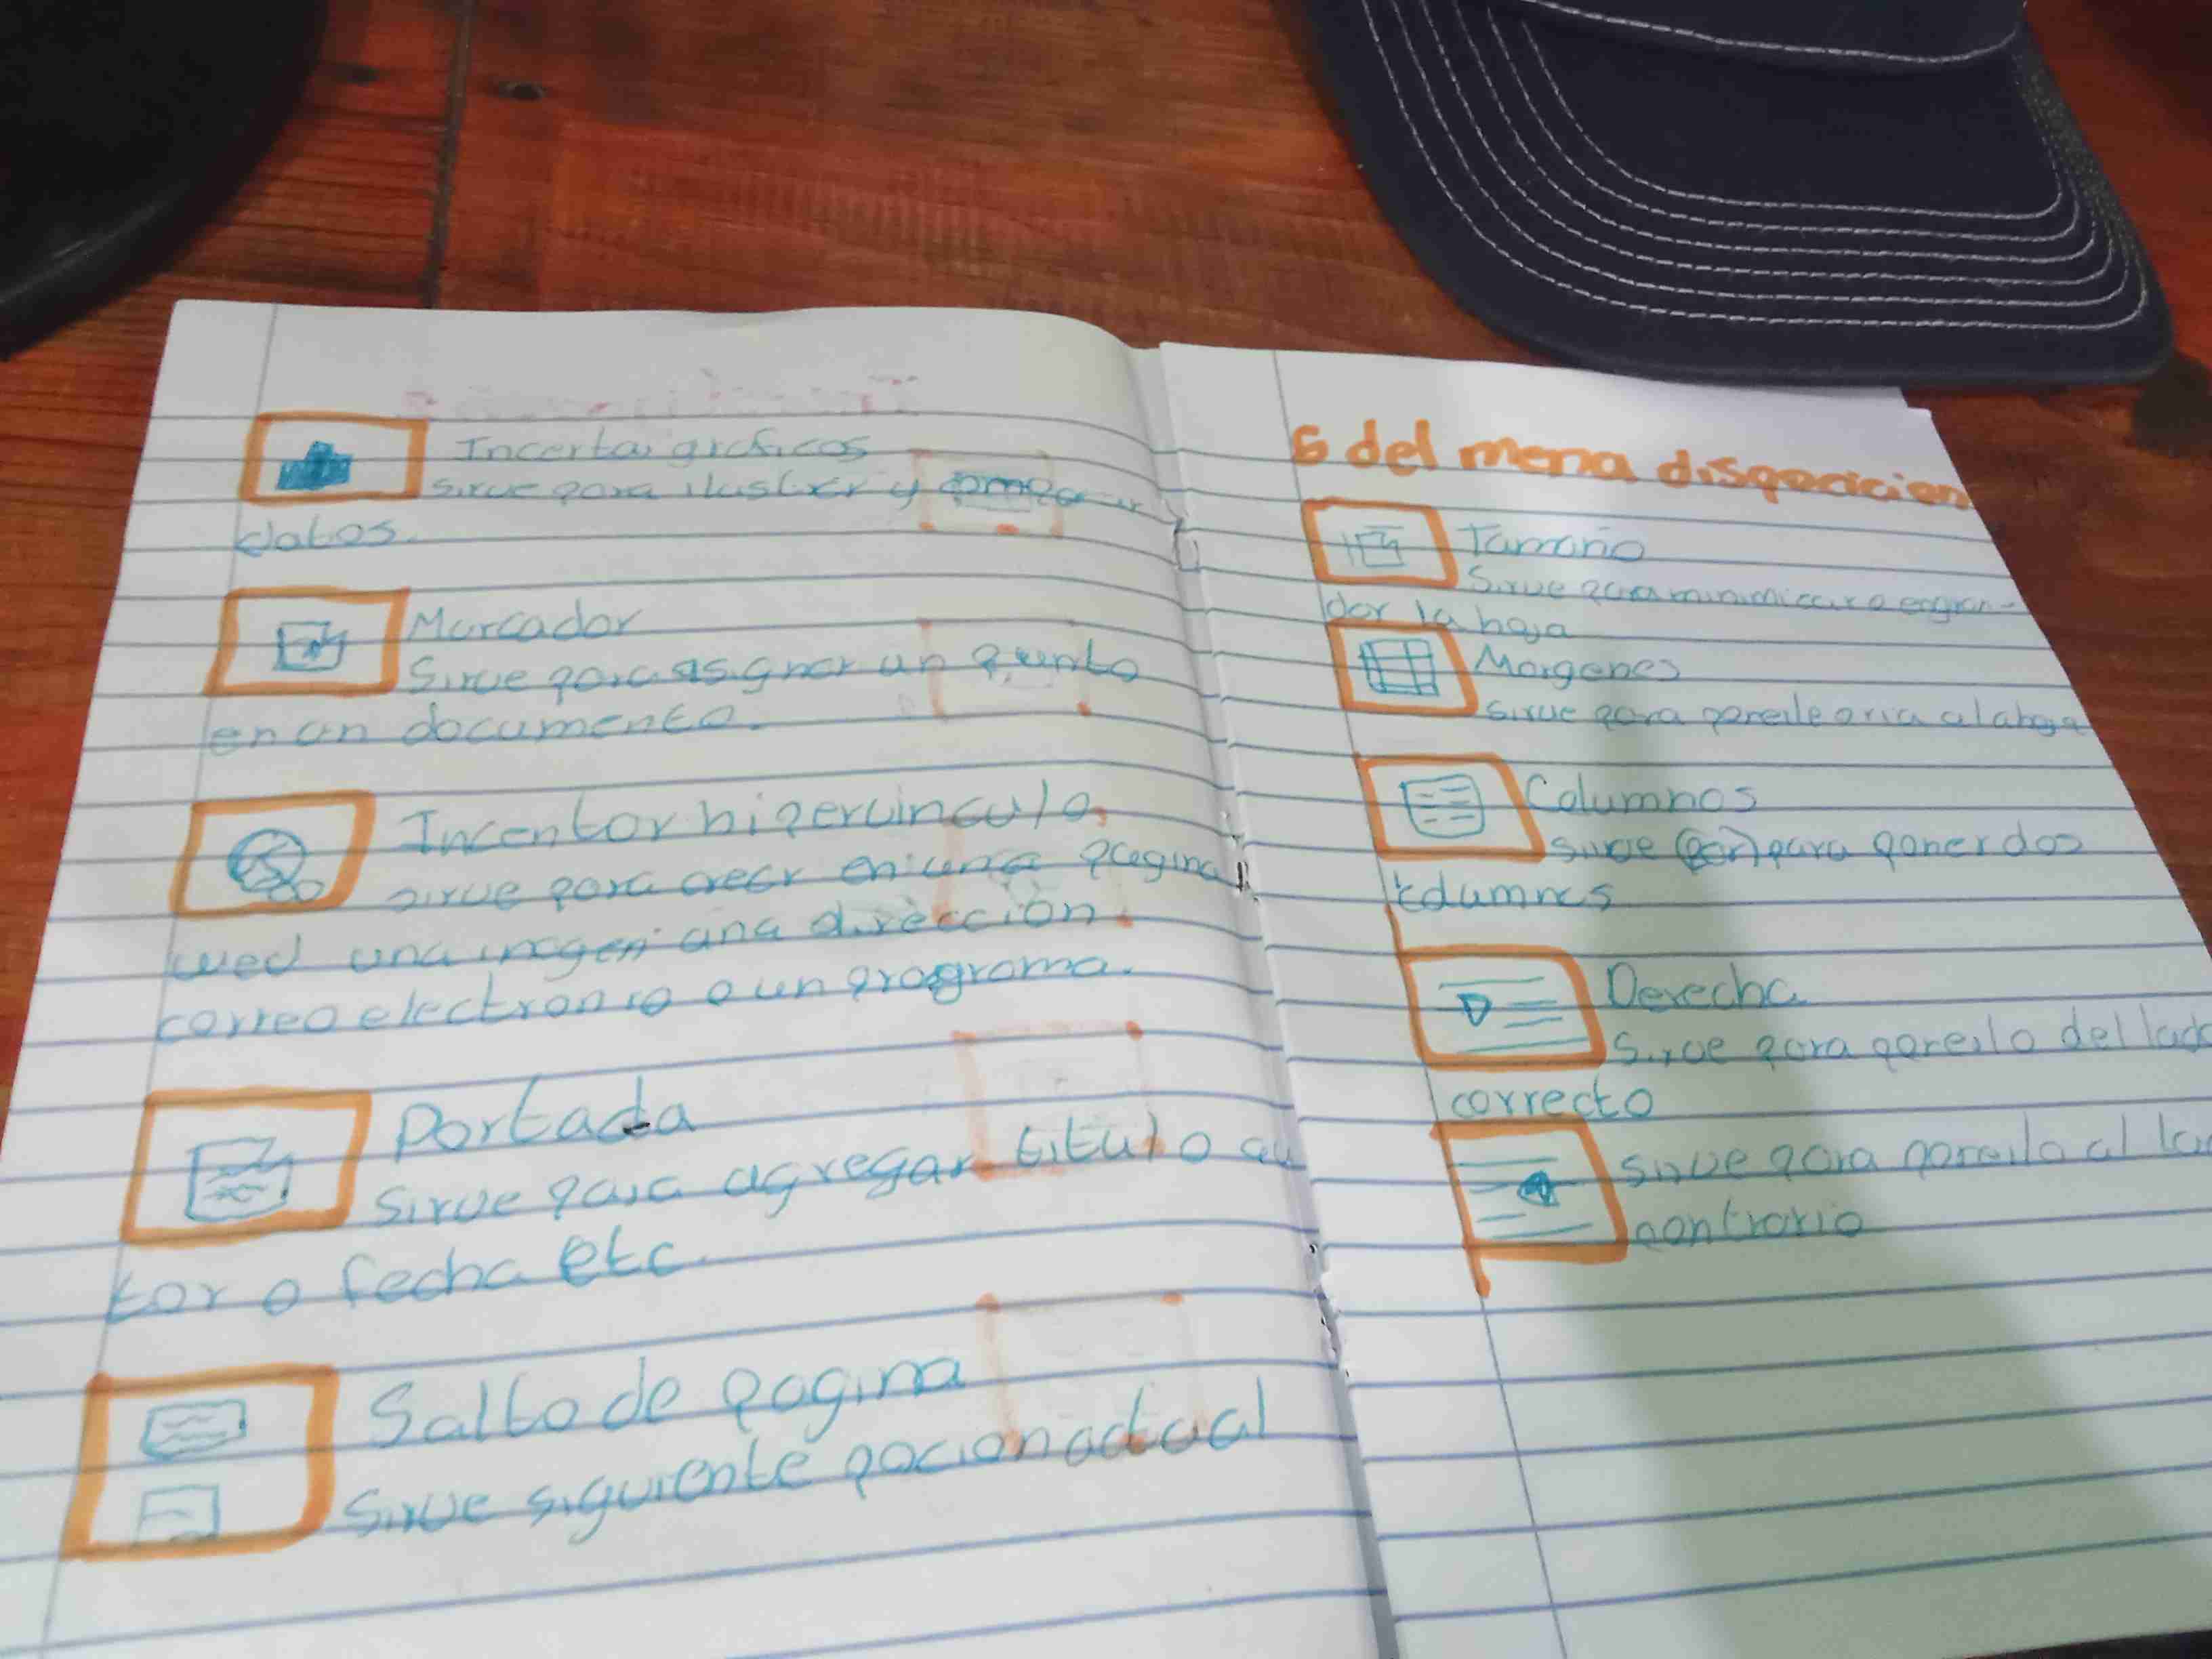 Incertar graficos
sirve para ilustrer y comparar
datos.
Marcador
Sirve para asignar un punto
en un documento.
Incentor hipervinculo.
sirve para crear en una pagina
wed una imagen una dirección
correo electronico o un programa.
Portada
Sirve para agregar titulo au
tor o fecha etc.
Salto de pagina
Sirve siguiente actual
5 del menu
Tamaño
Sirve para minimicar o engran-
dar la hoja
Margenes
sirve para a la hoja
Columnas
sirve para poner dos
columnes
Derecha
Sirve para ponerlo del lado
correcto
Sirve para ponerlo al la
contrario